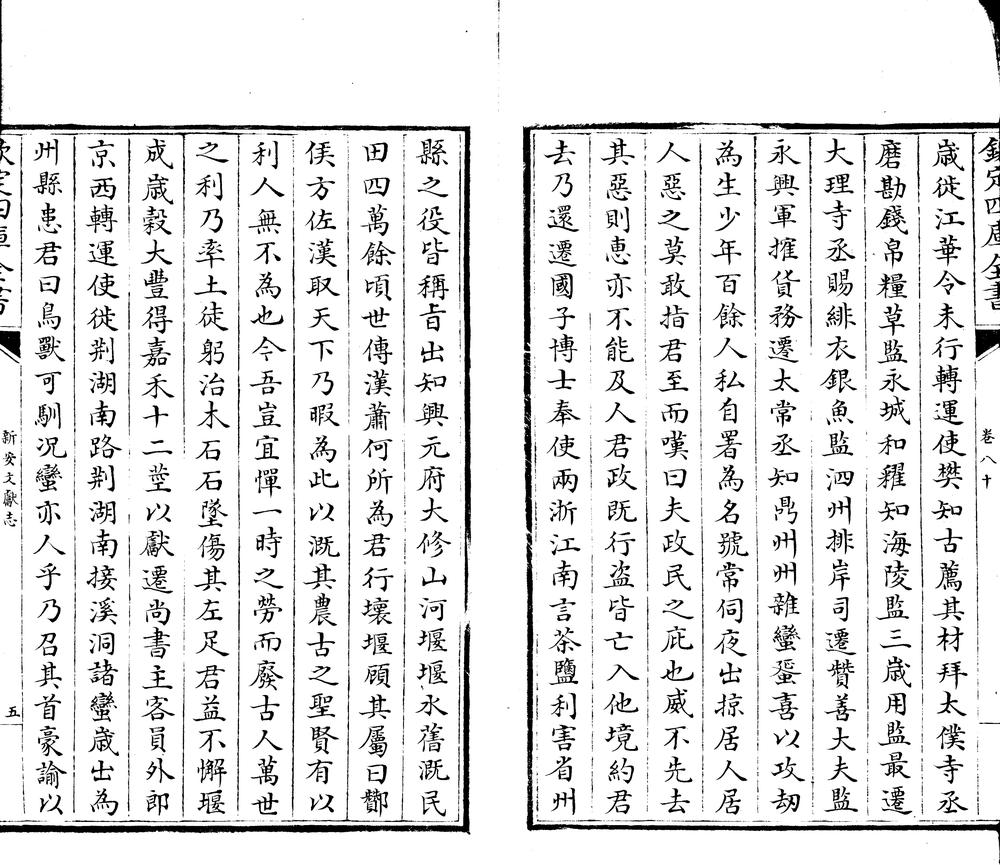 欽定四庫全書
卷八十
歳徙江華令未行轉運使樊知古薦其材拜太僕寺丞
磨勘錢帛糧草監永城和糴知海陵監三歳用監最遷
大理寺丞賜緋衣銀魚監泗州排岸司遷贊善大夫監
永興軍搉貨務遷太常丞知鼎州州雜蠻蜑喜以攻刼
為生少年百餘人私自署為名號常伺夜出掠居人居
人惡之莫敢指君至而嘆曰夫政民之庇也威不先去
其惡則恵亦不能及人君政既行盗皆亡入他境約君
去乃還遷國子博士奉使兩浙江南言茶鹽利害省州
縣之役皆稱㫖出知興元府大修山河堰堰水舊溉民
田四萬餘頃世傳漢蕭何所為君行壞堰顧其屬曰酇
侯方佐漢取天下乃暇為此以溉其農古之聖賢有以
利人無不為也今吾豈宜憚一時之勞而廢古人萬世
之利乃率土徒躬治木石石墜傷其左足君益不懈堰
成歳榖大豐得嘉禾十二莖以獻遷尚書主客員外郎
京西轉運使徙荆湖南路荆湖南接溪洞諸蠻歳出為
州縣患君曰鳥獸可馴况蠻亦人乎乃召其首豪諭以
欽定四庫全書
新安文獻志
五